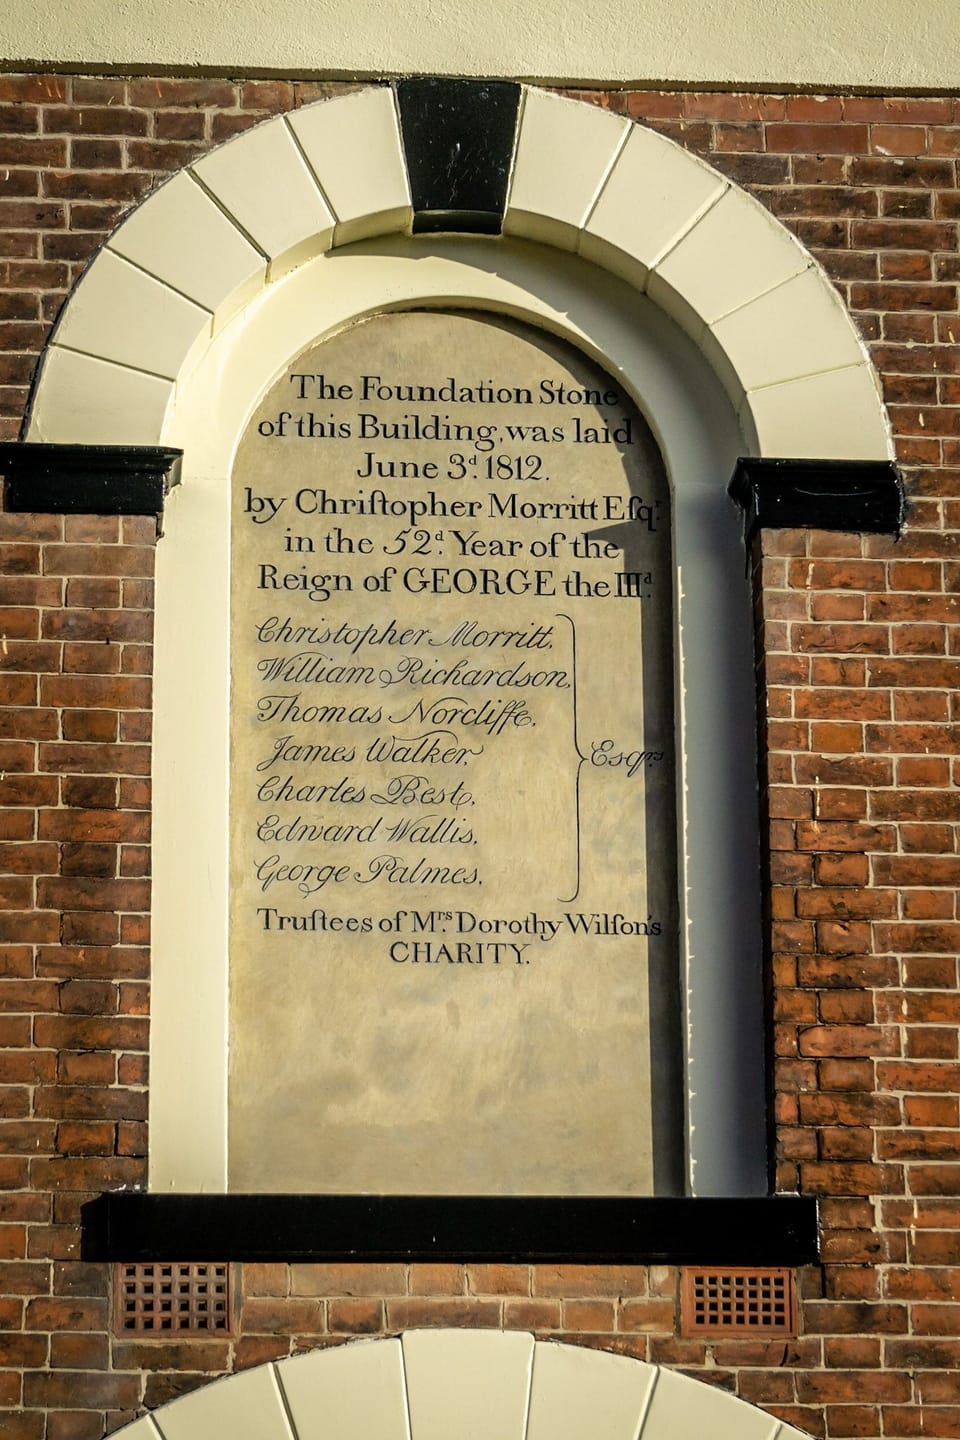 The Foundation Stone
of this Building, was laid
June 3ᵈ. 1812.
by Chriſtopher Morritt Eſqʳ.
in the 52ᵈ. Year of the
Reign of GEORGE the IIIᵈ.
Christopher Morritt,
William Richardson,
Thomas Norcliffe,
James Walker,
Charles Best, Esqʳˢ
Edward Wallis,
George Palmes,
Truſtees of Mʳˢ. Dorothy Wilſon's
CHARITY.